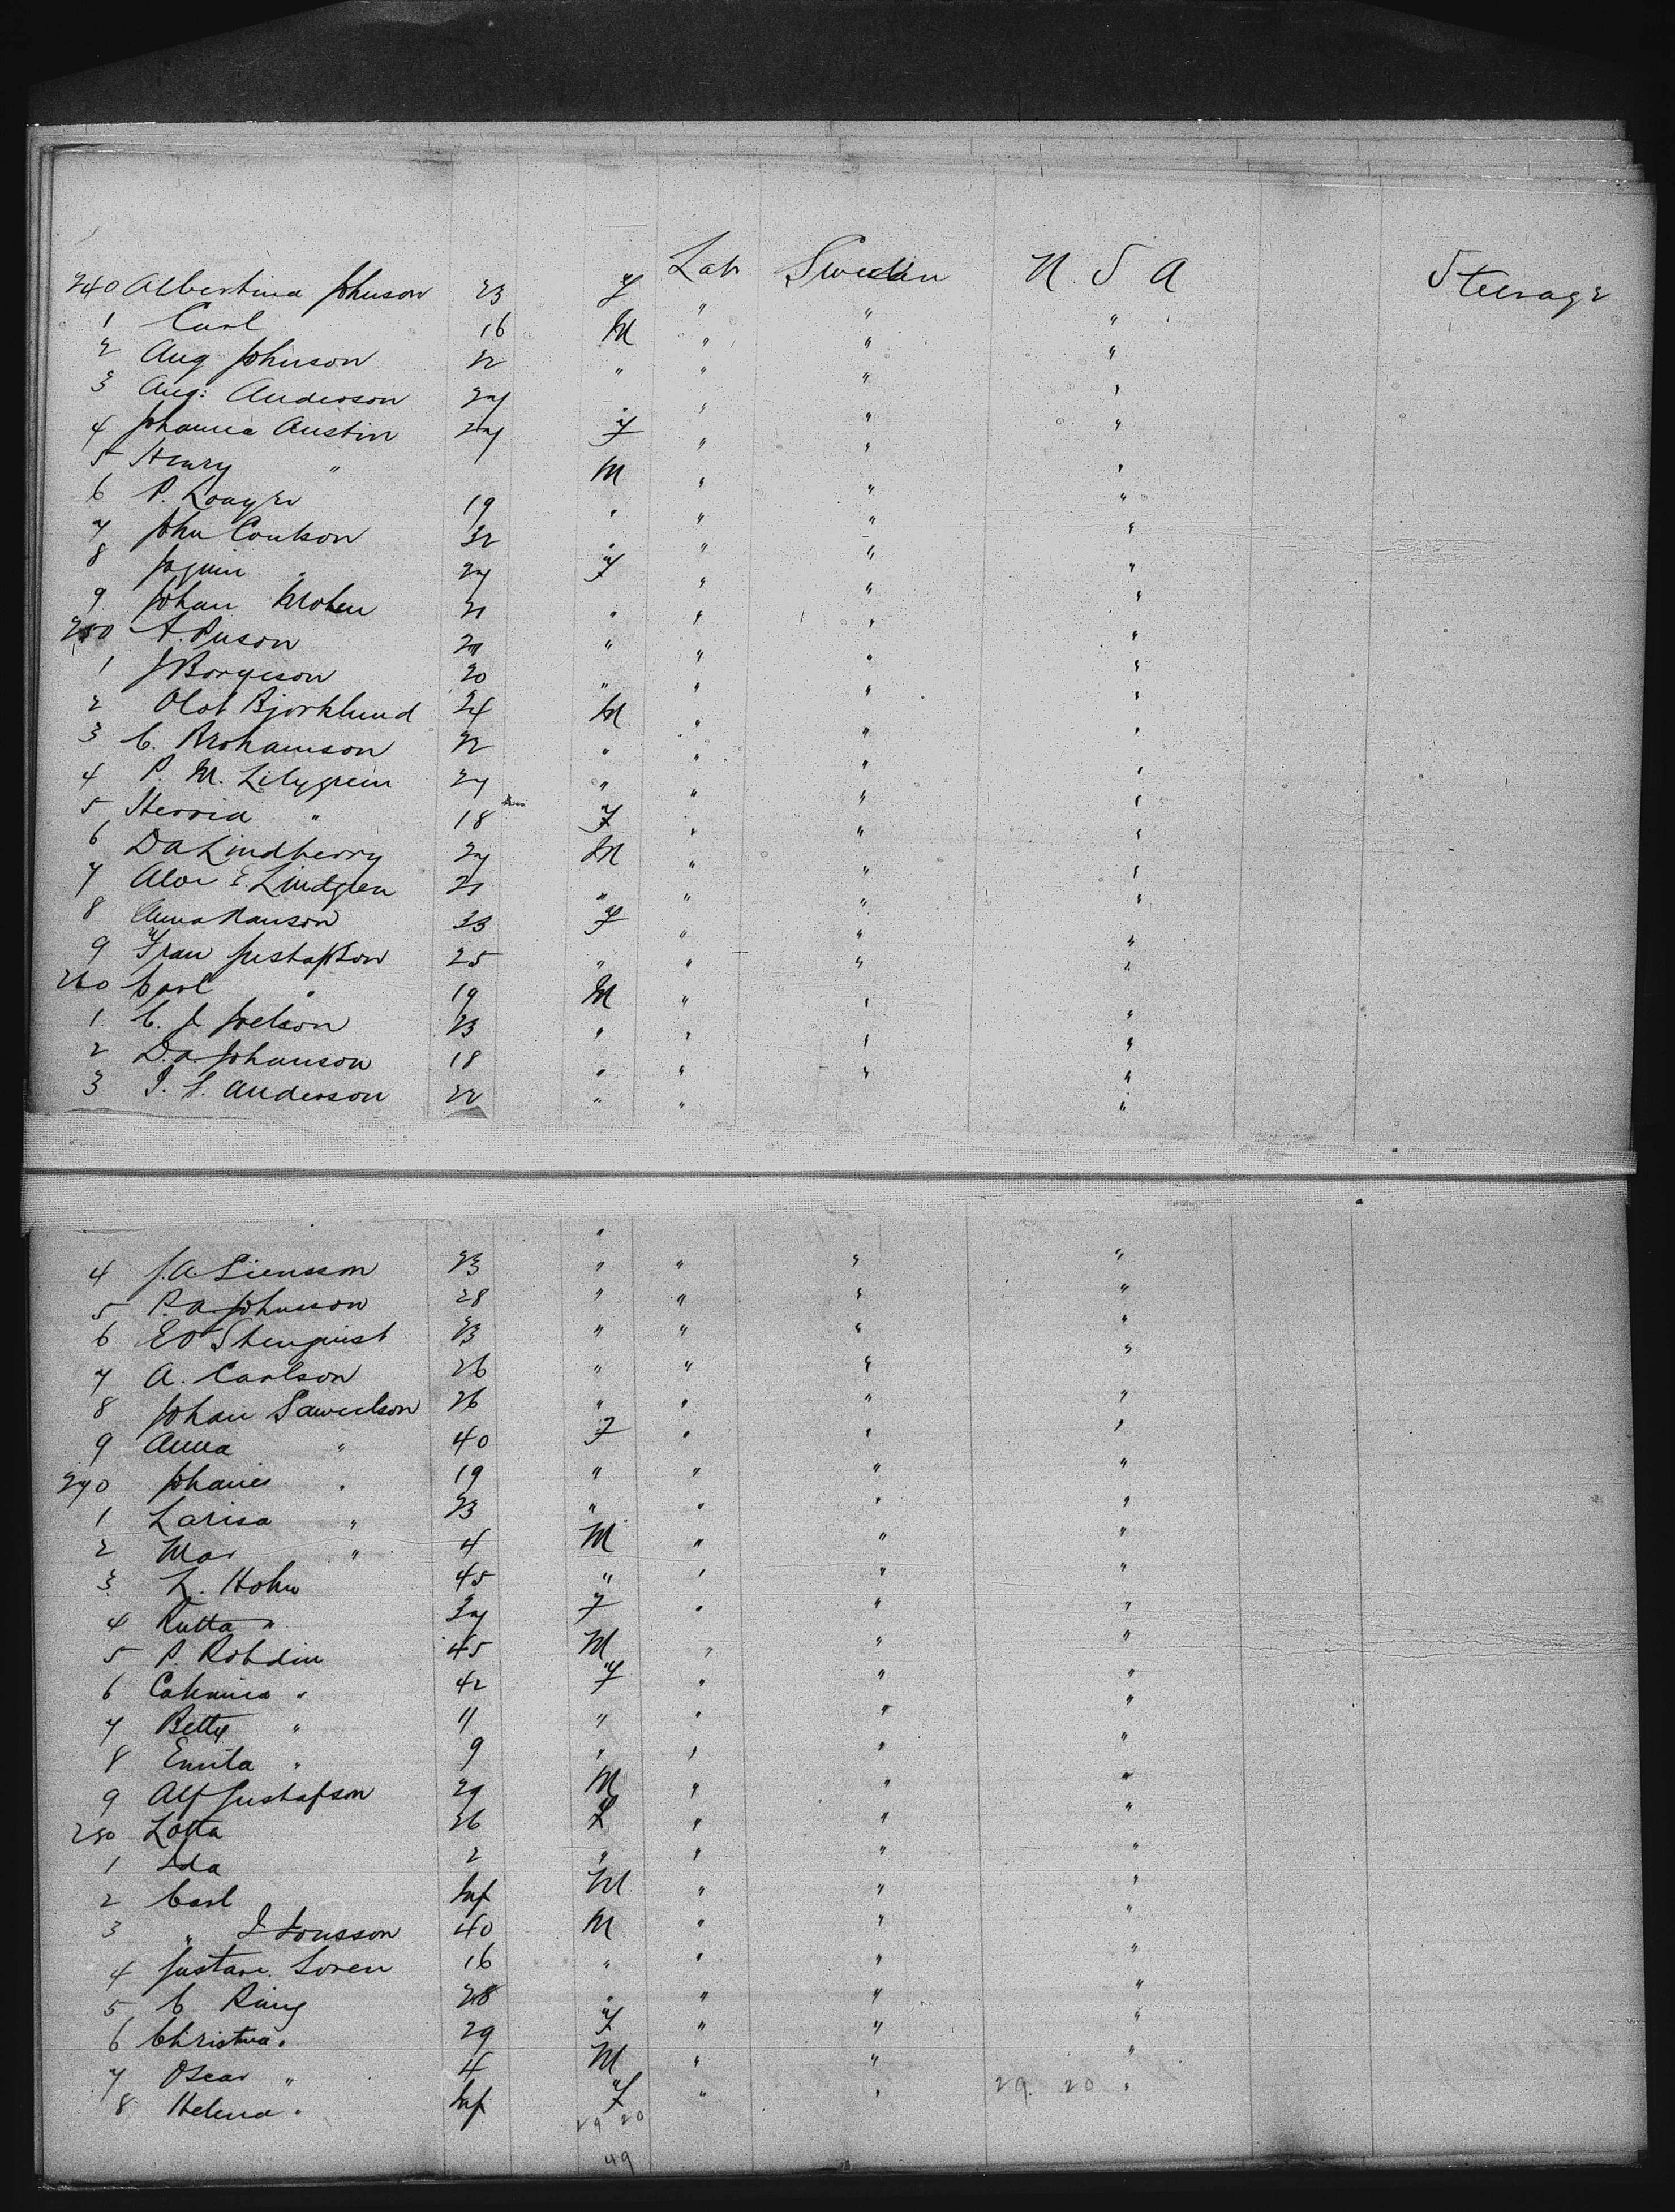 240 Albertina Johnson 23 F Lab Sweden U. S A Steerage
1 Carl 16 M " " "
2 Aug Johnson 22 " " " "
3 Aug: Anderson 27 " " " "
4 Johanna Austin 27 F " " "
5 Henry " 1 M " " "
6 P. 19 " " " "
7 John Coulson 32 " " " "
8 " 27 F " " "
9 Johan 21 " " " "
250 A. 21 " " " "
1 J Borgeson 20 " " " "
2 Olof Bjorklund 24 M " " "
3 C. Brohamson 22 " " " "
4 P. M. Lilygreen 27 " " " "
5 " 18 F " " "
6 D A Lindberry 27 M " " "
7 E. Lindgren 21 " " " "
8 Anna Hanson 33 F " " "
9 Fran Gustafson 25 " " " "
260 Carl " 19 M " " "
1 C. J. Joelson 23 " " " "
2 D. a. Johanson 18 " " " "
3 J. S. Anderson 22 " " " "
4 J. A. 23 " " " "
5 P. a Johnson 28 " " " "
6 E O Stenquist 23 " " " "
7 A. Carlson 26 " " " "
8 Johan Samuelson 26 " " " "
9 Anna " 40 F " " "
270 Johanes " 19 " " " "
1 Larisa " 23 " " " "
2 " 4 M " " "
3 L. Hohn 45 " " " "
4 Rutta " 37 F " " "
5 P. Robdin 45 M " " "
6 " 42 F " " "
7 Betty " 11 " " " "
8 Emila " 9 " " " "
9 Alf Gustafson 29 M " " "
280 Lotta 26 F " " "
1 Ida 2 " " " "
2 Carl Inf M " " "
3 " J Jonsson 40 M " " "
4 Gustave. Loren 16 " " " "
5 C Ring 28 " " " "
6 Christina " 29 F " " "
7 Oscar " 4 M " " "
8 Helena " Inf F " " "
29 20 29. 20
49